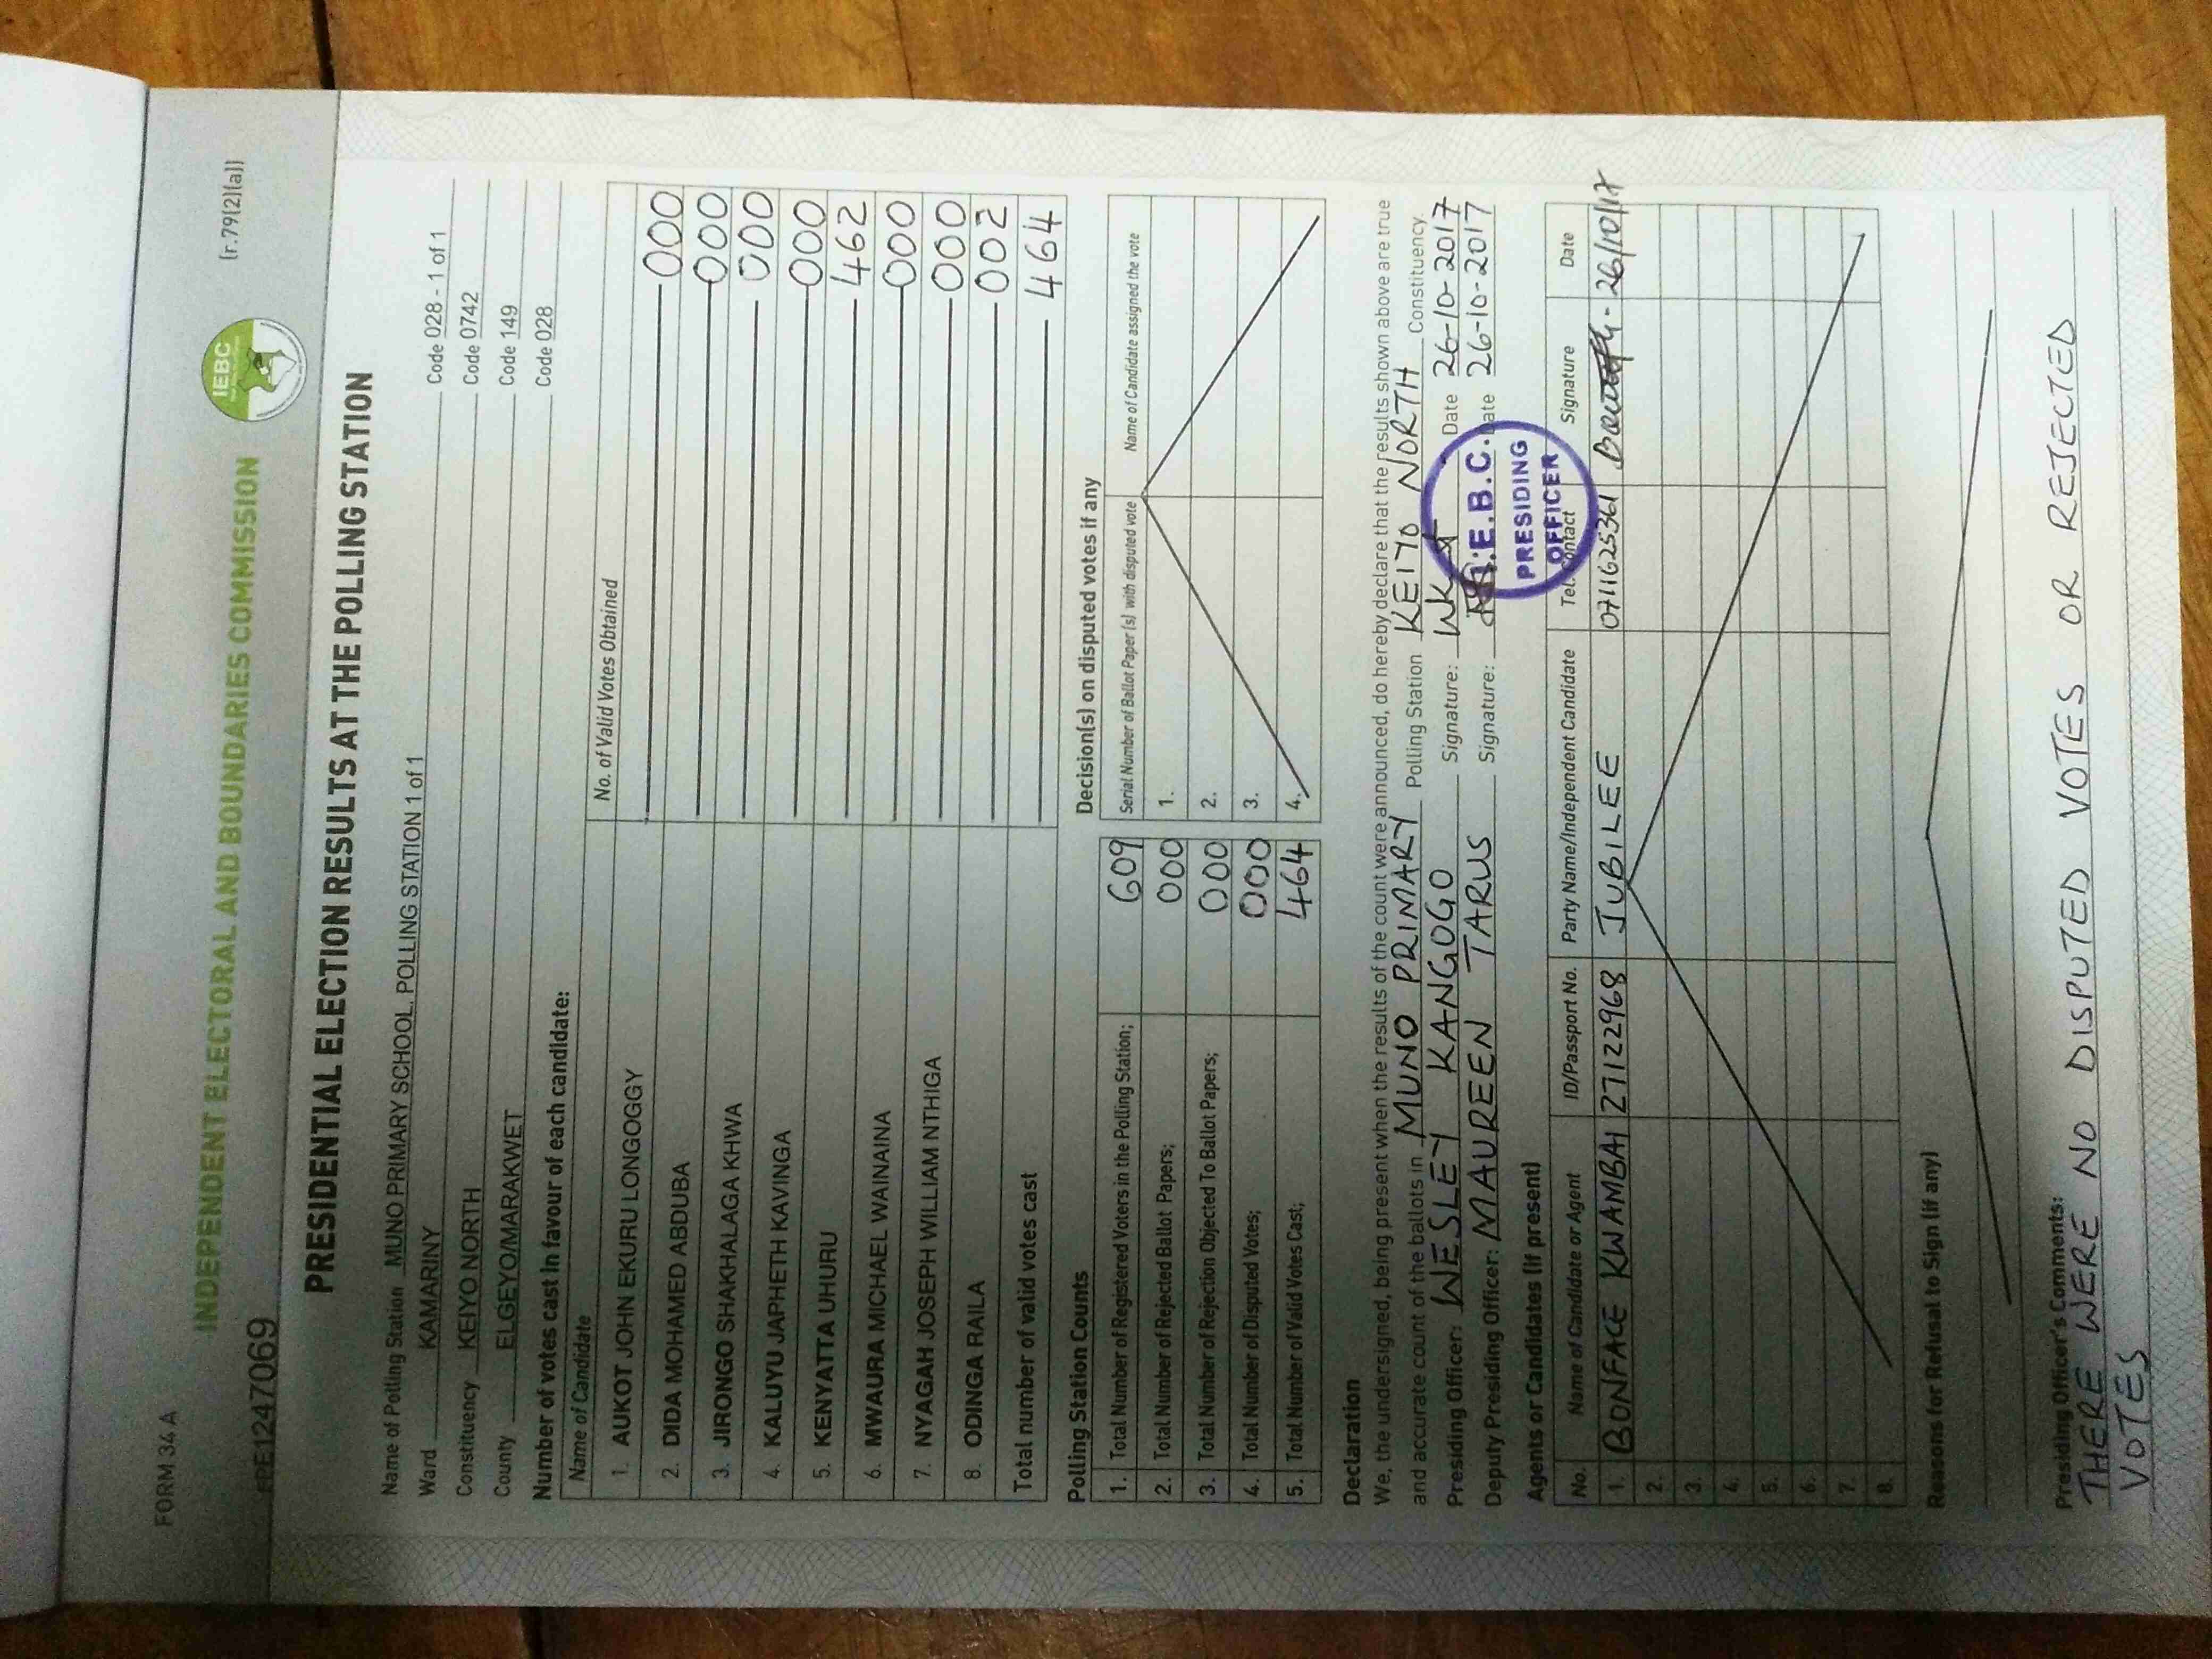 FORM 34 A
(r.79(2)(a))
INDEPENDENT ELECTORAL AND BOUNDARIES COMMISSION
IEBC
PE1247069
PRESIDENTIAL ELECTION RESULTS AT THE POLLING STATION
Name of Polling Station MUNO PRIMARY SCHOOL. POLLING STATION 1 of 1 Code 028 - 1 of 1
Ward KAMARINY Code 0742
Constituency KEIYO NORTH Code 149
County ELGEYO/MARAKWET Code 028
Number of votes cast in favour of each candidate:
Name of Candidate No. of Valid Votes Obtained
1. AUKOT JOHN EKURU LONGOGGY 000
2. DIDA MOHAMED ABDUBA 000
3. JIRONGO SHAKHALAGA KHWA 000
4. KALUYU JAPHETH KAVINGA 000
5. KENYATTA UHURU 462
6. MWAURA MICHAEL WAINAINA 000
7. NYAGAH JOSEPH WILLIAM NTHIGA 000
8. ODINGA RAILA 002
Total number of valid votes cast 464
Polling Station Counts
1. Total Number of Registered Voters in the Polling Station; 609
2. Total Number of Rejected Ballot Papers; 000
3. Total Number of Rejection Objected To Ballot Papers; 000
4. Total Number of Disputed Votes; 000
5. Total Number of Valid Votes Cast; 464
Decision(s) on disputed votes if any
Serial Number of Ballot Paper (s) with disputed vote Name of Candidate assigned the vote
1.
2.
3.
4.
Declaration
We, the undersigned, being present when the results of the count were announced, do hereby declare that the results shown above are true
and accurate count of the ballots in MUNO PRIMARY Polling Station KEIYO NORTH Constituency.
Presiding Officer: WESLEY KANGOGO Signature: Date 26-10-2017
Deputy Presiding Officer: MAUREEN TARUS Signature: Date 26-10-2017
I.E.B.C.
PRESIDING
OFFICER
Agents or Candidates (if present)
No. Name of Candidate or Agent ID/Passport No. Party Name/Independent Candidate Tel. Contact Signature Date
1. BONFACE KWAMBAI 27122968 JUBILEE 0711625361 26/10/17
2.
3.
4.
5.
6.
7.
8.
Reasons for Refusal to Sign (if any)
Presiding Officer's Comments:
THERE WERE NO DISPUTED VOTES OR REJECTED
VOTES